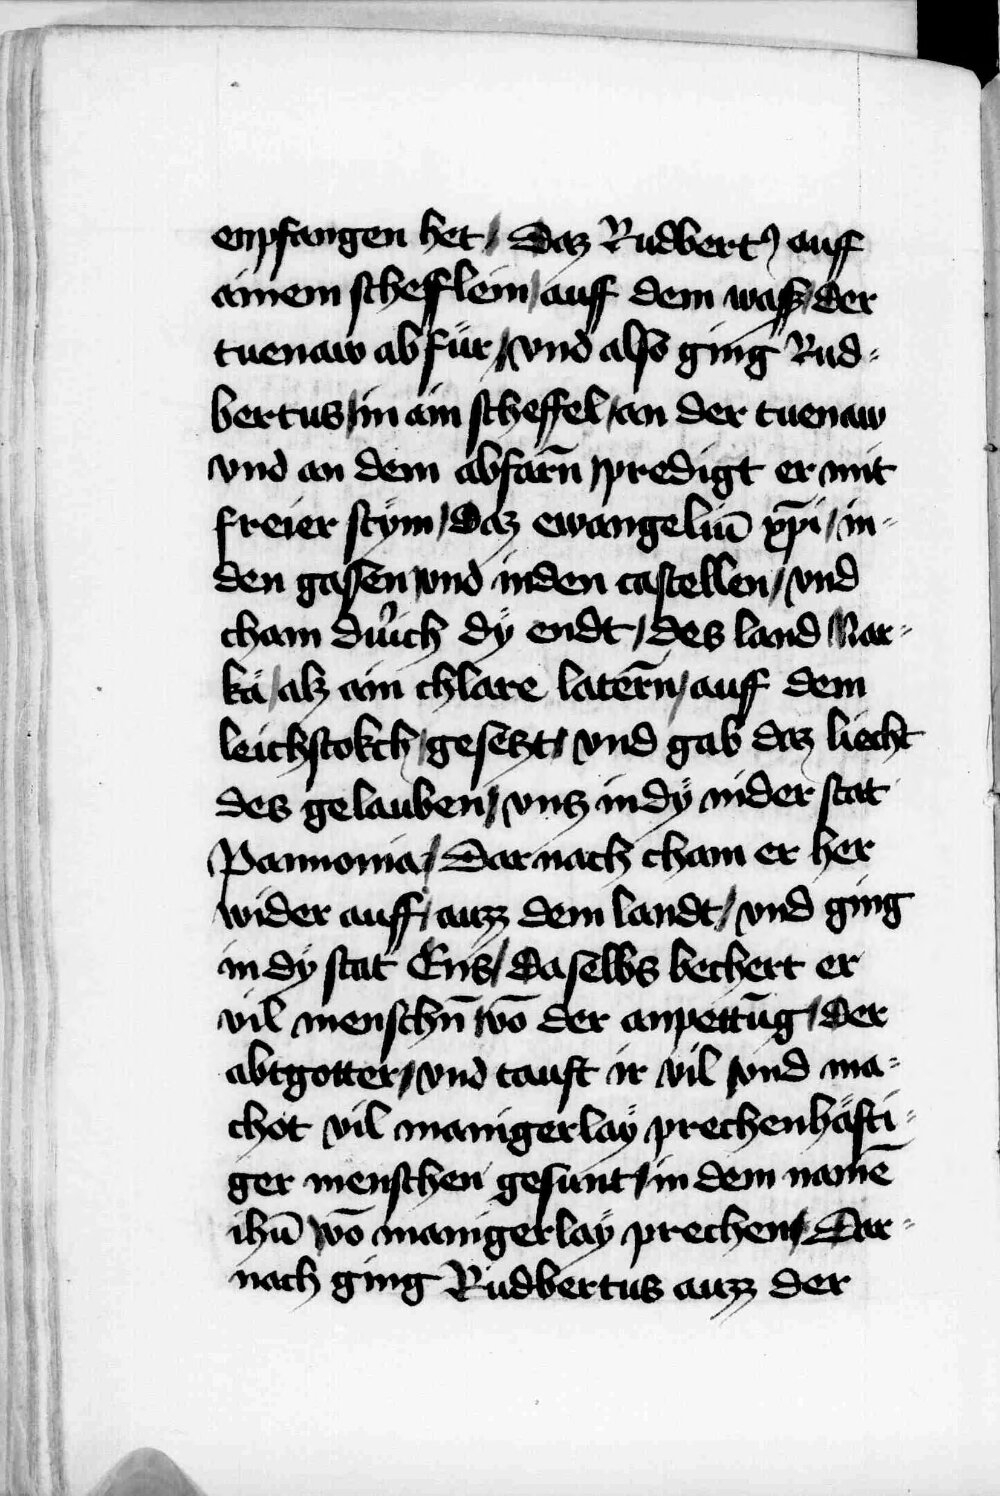 enpfangen het / Daz Rudbertꝰ auff
ainem schefflein / auff dem wassz / der
tuenaw ab für / vnd also ging Rud=
bertus / in ain scheffel / an der tuenaw
vnd an dem abfarn̄ / predigt er mit
freier stÿm / Daz ewangeliū xp̄i / in=
den gassen vnd inden castellen / vnd
cham durich dÿ endt / des land Nar=
kä / alz ain chlare latern̄ / auff dem
leichstokch / gesetzt / vnd gab daz liecht
des gelauben / vnz in dÿ nider stat
Pannonia / Dar nach cham er her
wider auff / auzz dem landt / vnd ging
in dÿ stat Ens / Daselbs bechert er
vil menschn̄ vō der anpettūg / der
abtgotter / vnd tauft ir vil / vnd ma=
chot vil manigerlaÿ prechenhäfti=
ger menschen gesunt / in dem namē
ihū vō manigerlaÿ prechen / Dar=
nach ging Rudbertus auzz der